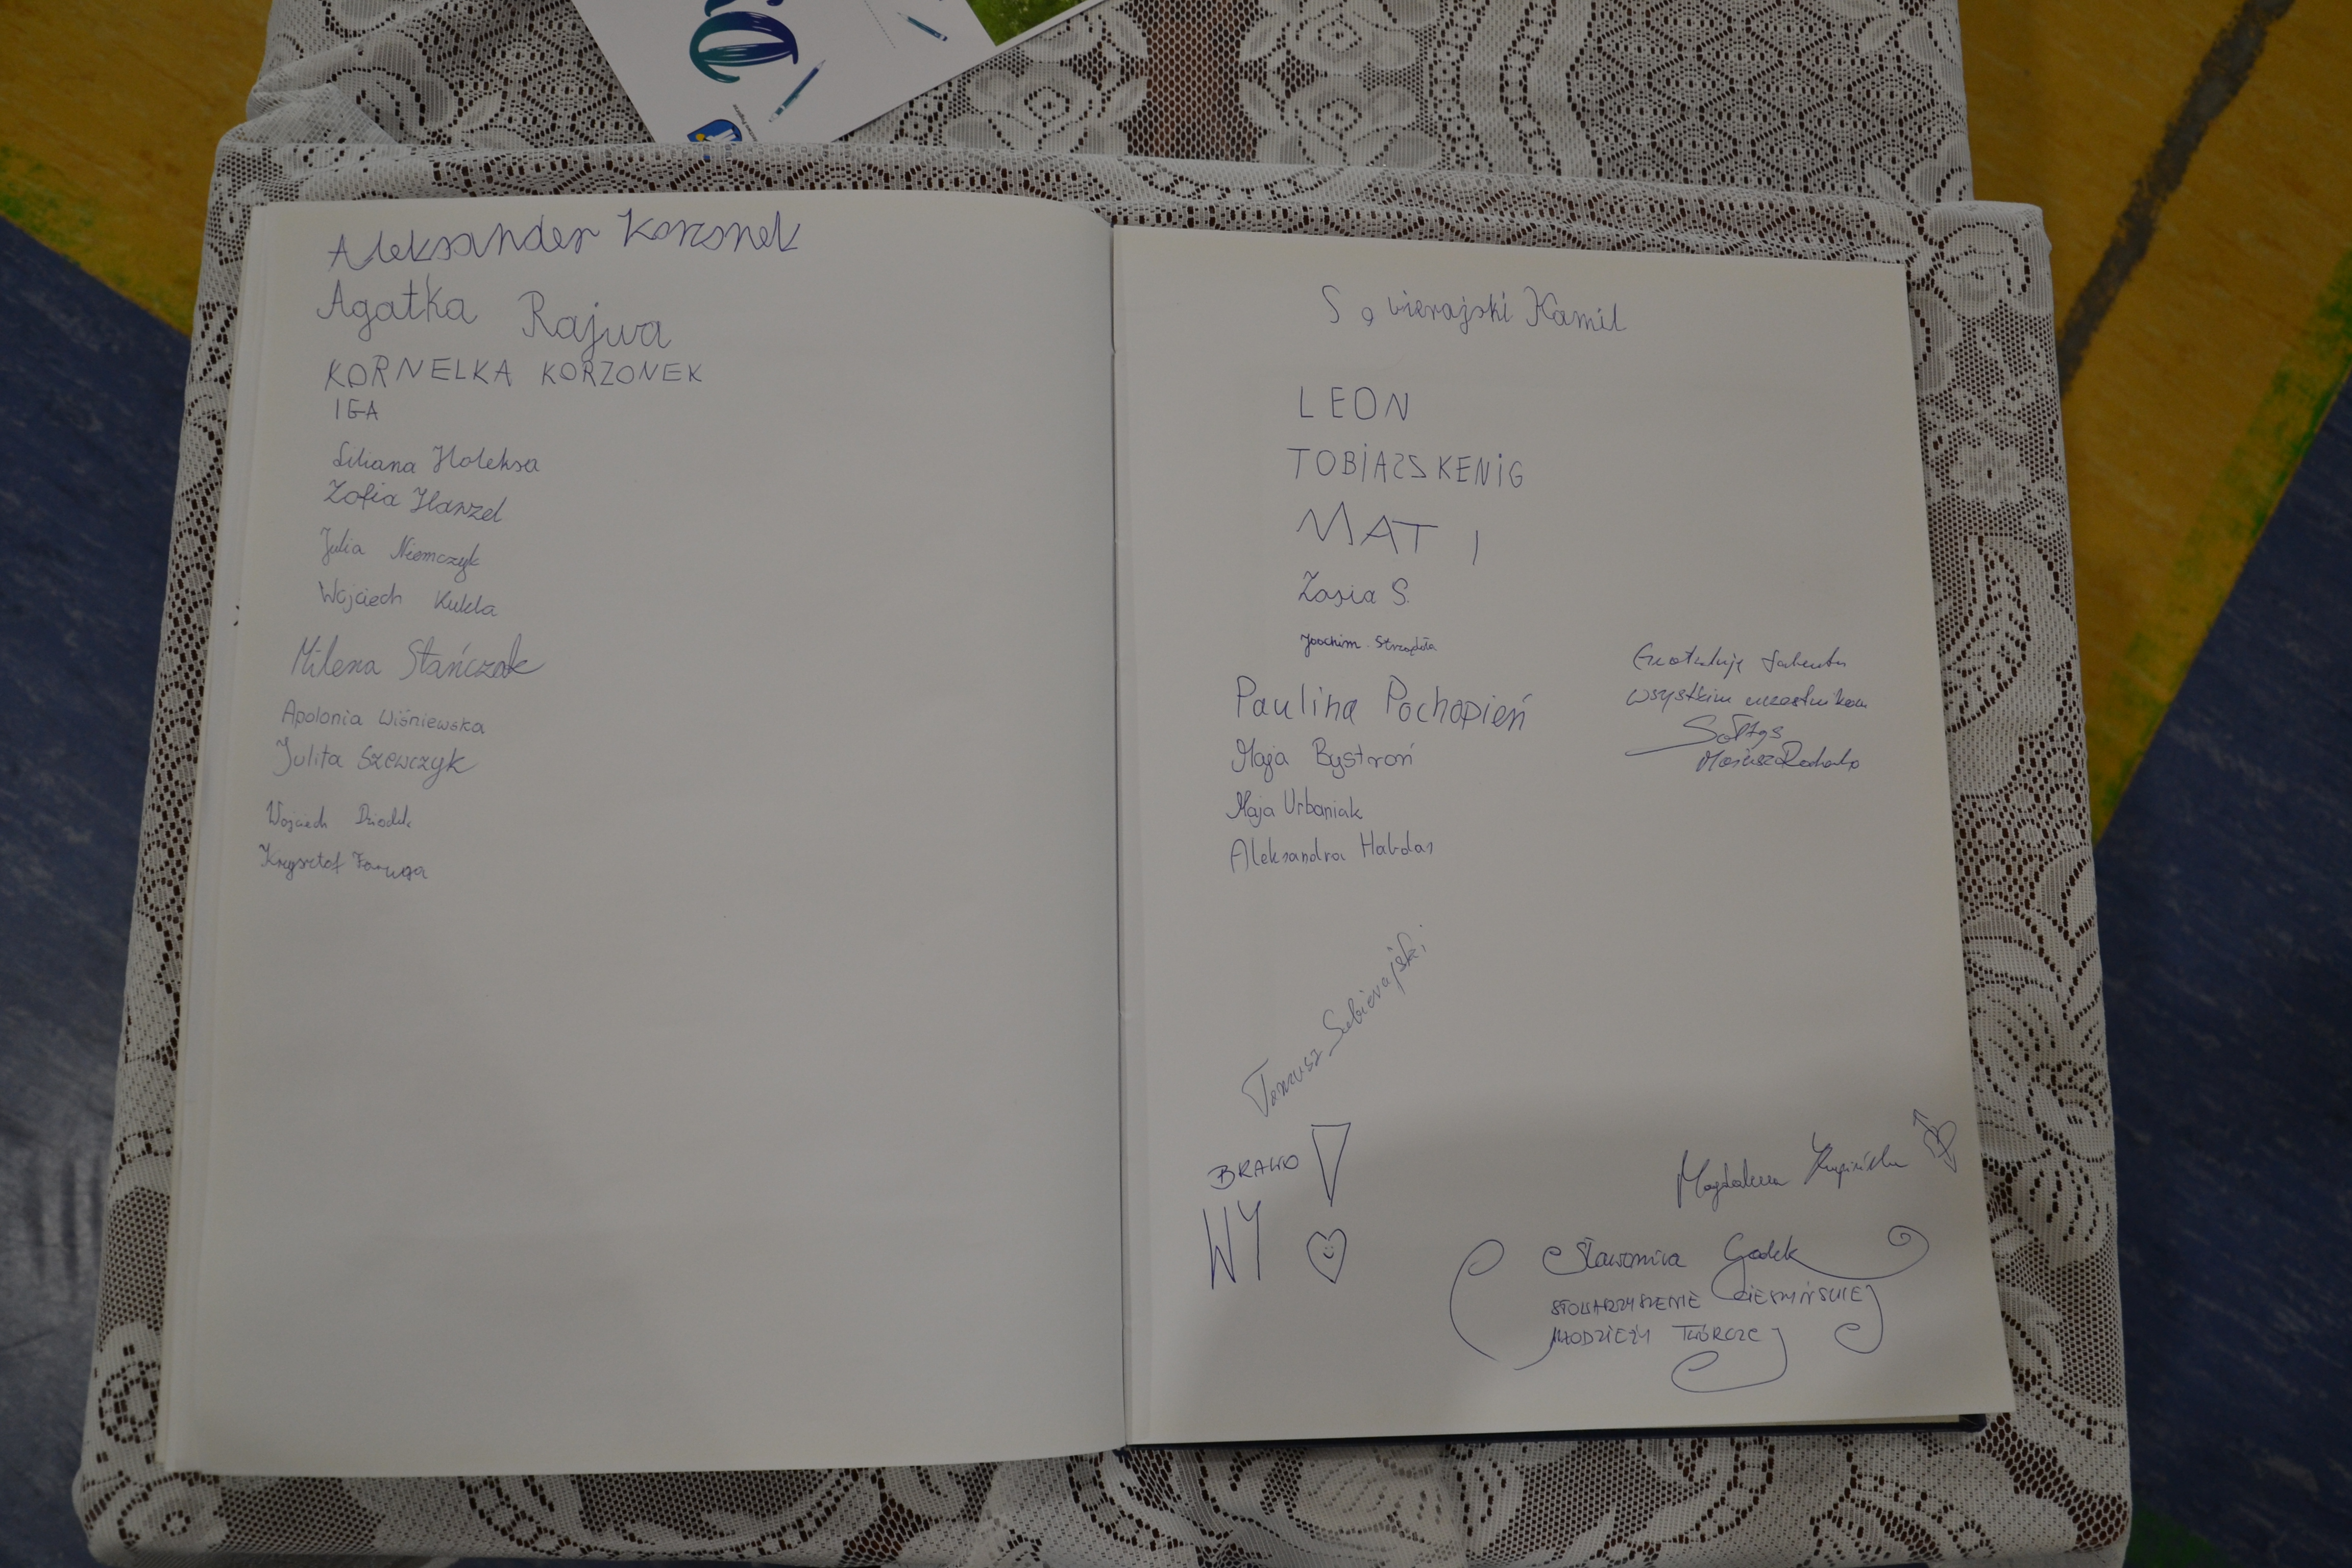 Aleksander Korzonek
Agatka Rajwa
KORNELKA KORZONEK
IGA
Liliana Holeksa
Zofia Hanzel
Julia Niemczyk
Wojciech Kukla
Milena Stańczak
Apolonia Wiśniewska
Julita Szewczyk
Wojciech
Krzysztof Faruga
Kamil
LEON
TOBIASZ KENIG
MAT I
Zosia S.
Joachim Strządała
Paulina Pochopień
Maja Bystroń
Maja Urbaniak
Aleksandra Habdas
Gratuluję talentu
wszystkim uczestnikom
Sołtys
BRAWO
WY
Magdalena
Sławomira Godek
STOWARZYSZENIE CIESZYŃSKIEJ
MŁODZIEŻY TWÓRCZEJ